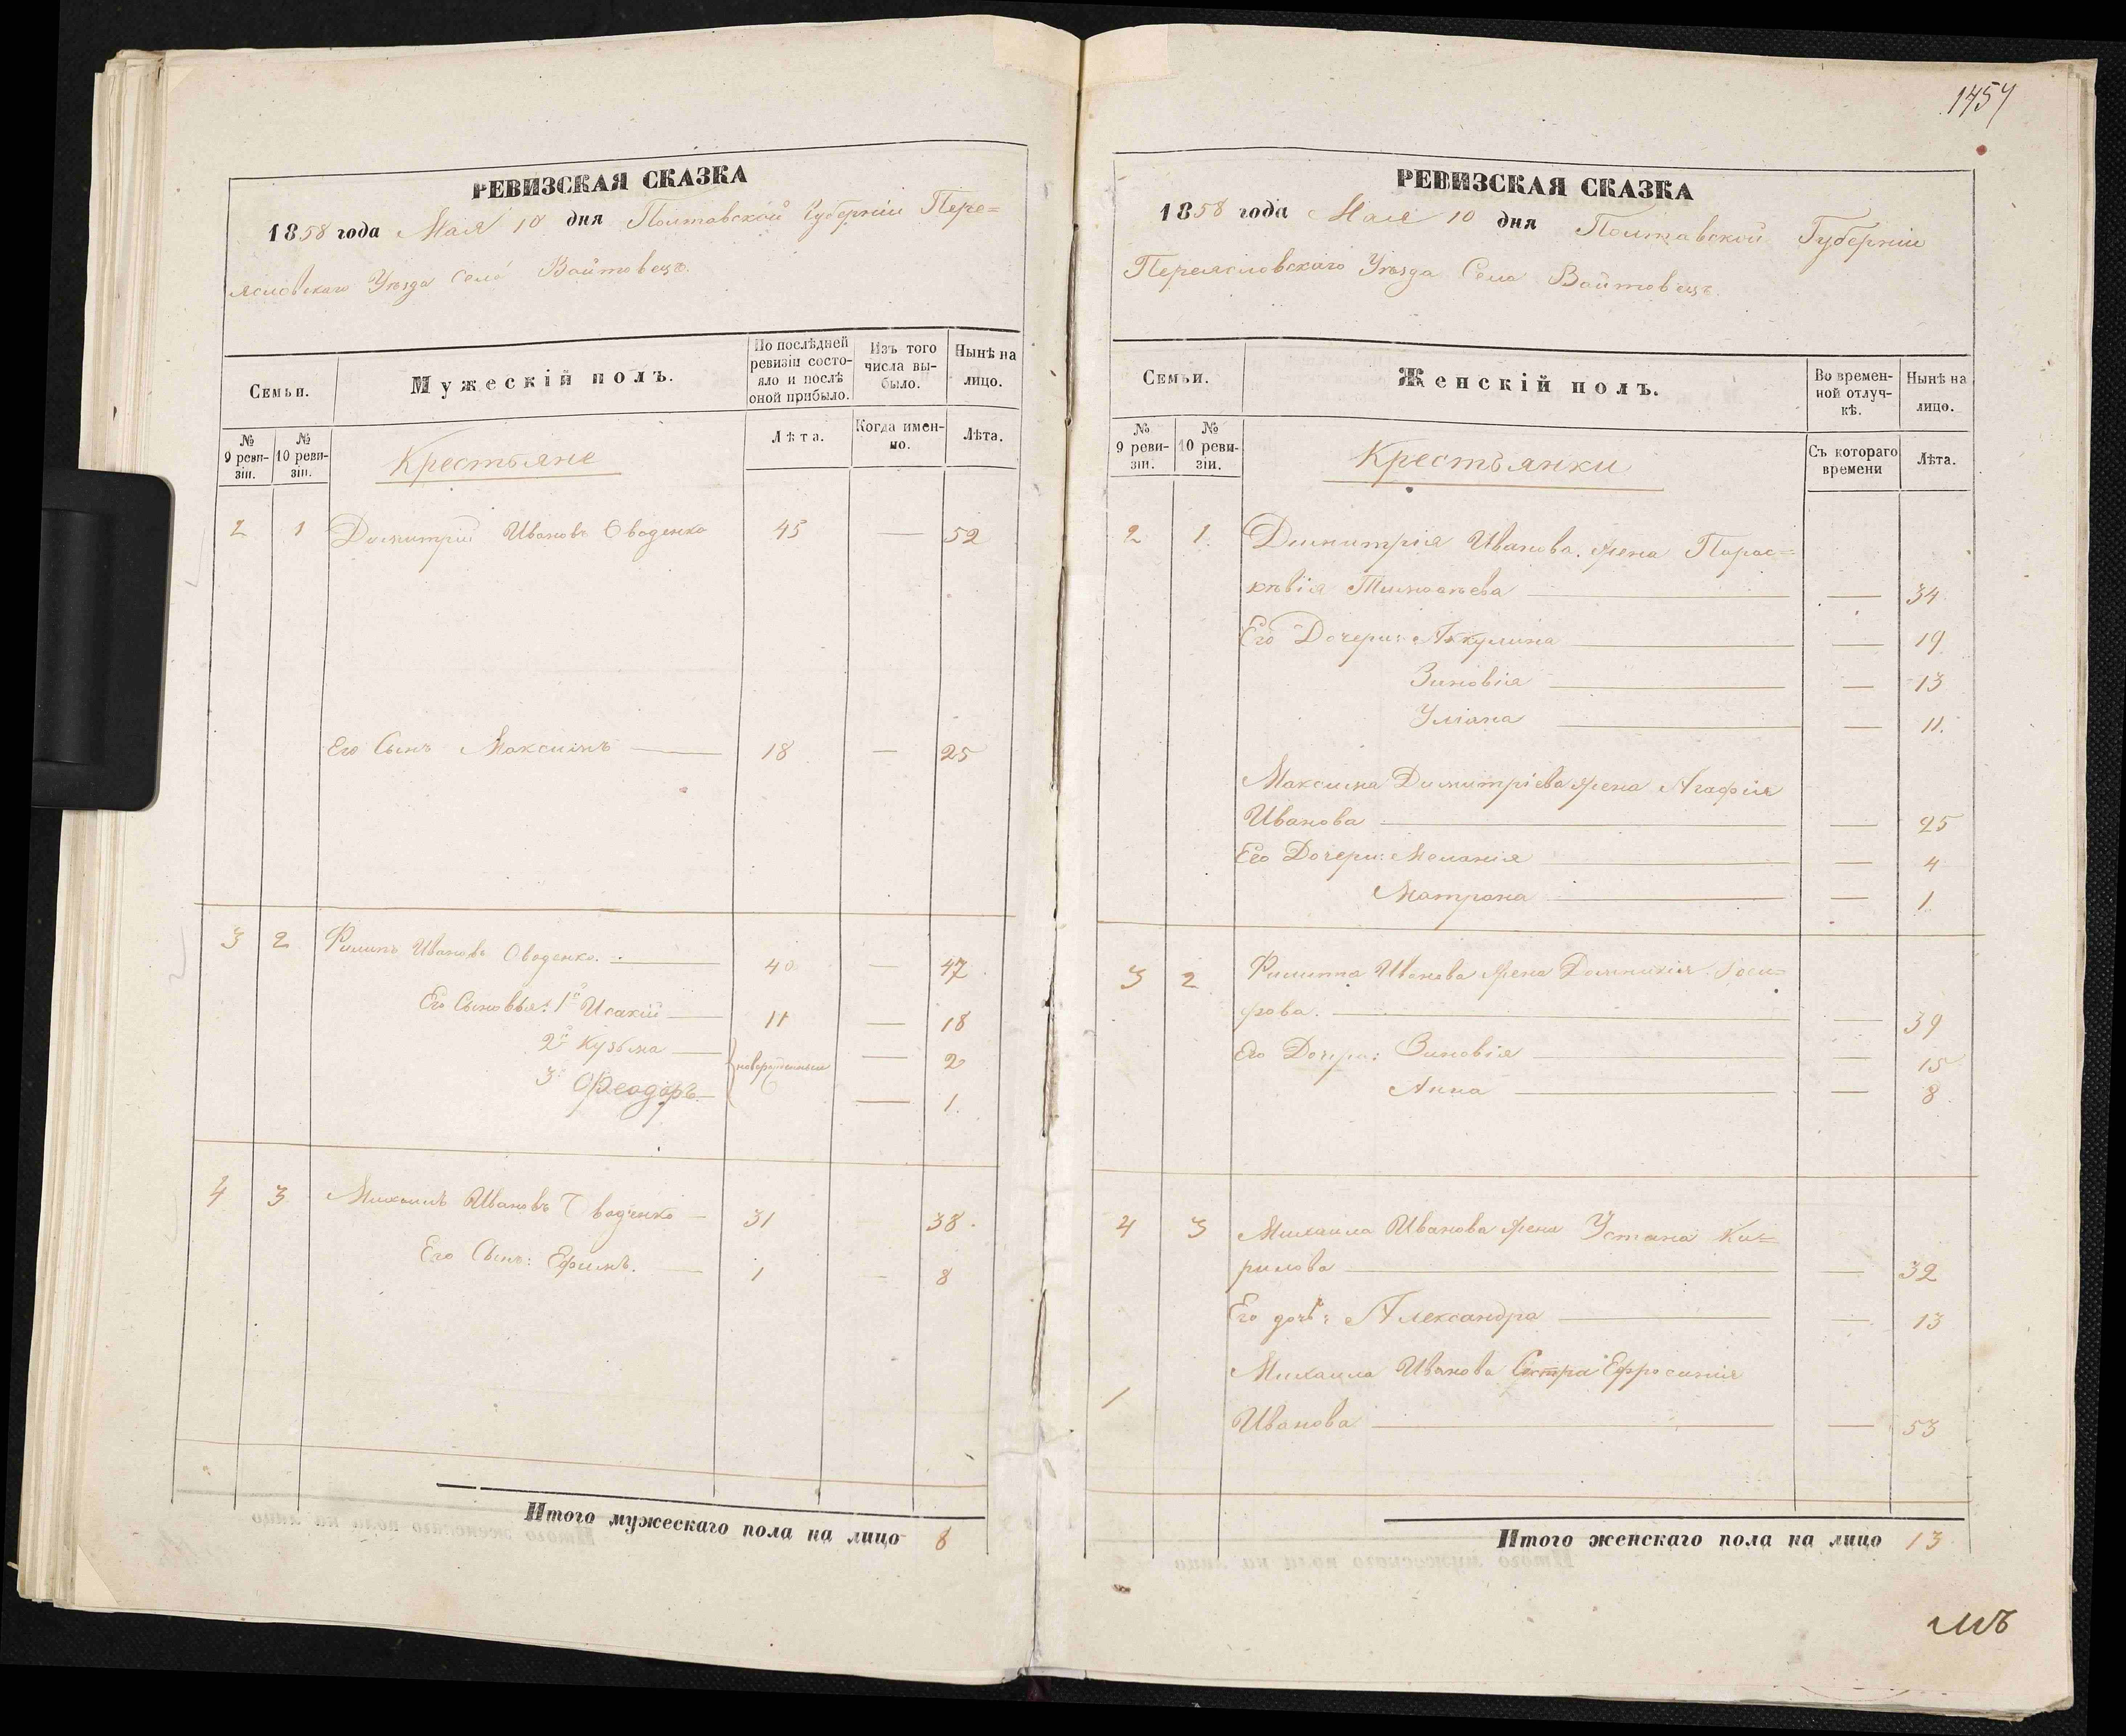 1454
РЕВИЗСКАЯ СКАЗКА
1858 года Мая 10 дня Полтавской Губерніи Пере=
яславскаго Уѣзда Села Войтовецъ.
Семьи.
Мужескій полъ.
По послѣдней ревизіи состояло и послѣ оной прибыло.
Изъ того числа выбыло.
Нынѣ на лицо.
№ 9 ревизіи.
№ 10 ревизіи.
Крестьяне
Лѣта.
Когда именно.
Лѣта.
2 1 Димитрій Ивановъ Оваденко 45 — 52
Его Сынъ Максимъ — 18 — 25
3 2 Филипъ Ивановъ Оваденко. — 40 — 47
Его Сыновья: 1й Исакій — 11 — 18
2й Кузьма — новорожденные — 2
3й Феодоръ — — 1.
4 3 Михаилъ Ивановъ Оваденко — 31 38.
Его Сынъ: Ефимъ. — 1 — 8
Итого мужескаго пола на лицо 8
РЕВИЗСКАЯ СКАЗКА
1858 года Мая 10 дня Полтавской Губерніи
Переясловскаго Уѣзда Села Войтовецъ.
Семьи.
Женскій полъ.
Во временной отлучкѣ.
Нынѣ на лицо.
№ 9 ревизіи.
№ 10 ревизіи.
Крестьянки
Съ котораго времени
Лѣта.
2 1. Димитрія Иванова жена Парас=
кѣвія Тимофѣева — — 34
Его Дочери: Акулина — — 19
Зиновія — — 13
Уліана — — 11.
Максима Димитріева жена Агафія
Иванова — — 25
Его Дочери: Меланія — — 4
Матрона — — 1.
3 2 Филипа Иванова жена Домникія Іоси=
фова. — — 39
Его Дочери: Зиновія — — 15
Анна — — 8
4 3 Михаила Иванова жена Устина Ки=
рилова — — 32
Его дочь: Александра — — 13
Михаила Иванова Сестра Ефросинія
Иванова — — 53
Итого женскаго пола на лицо 13